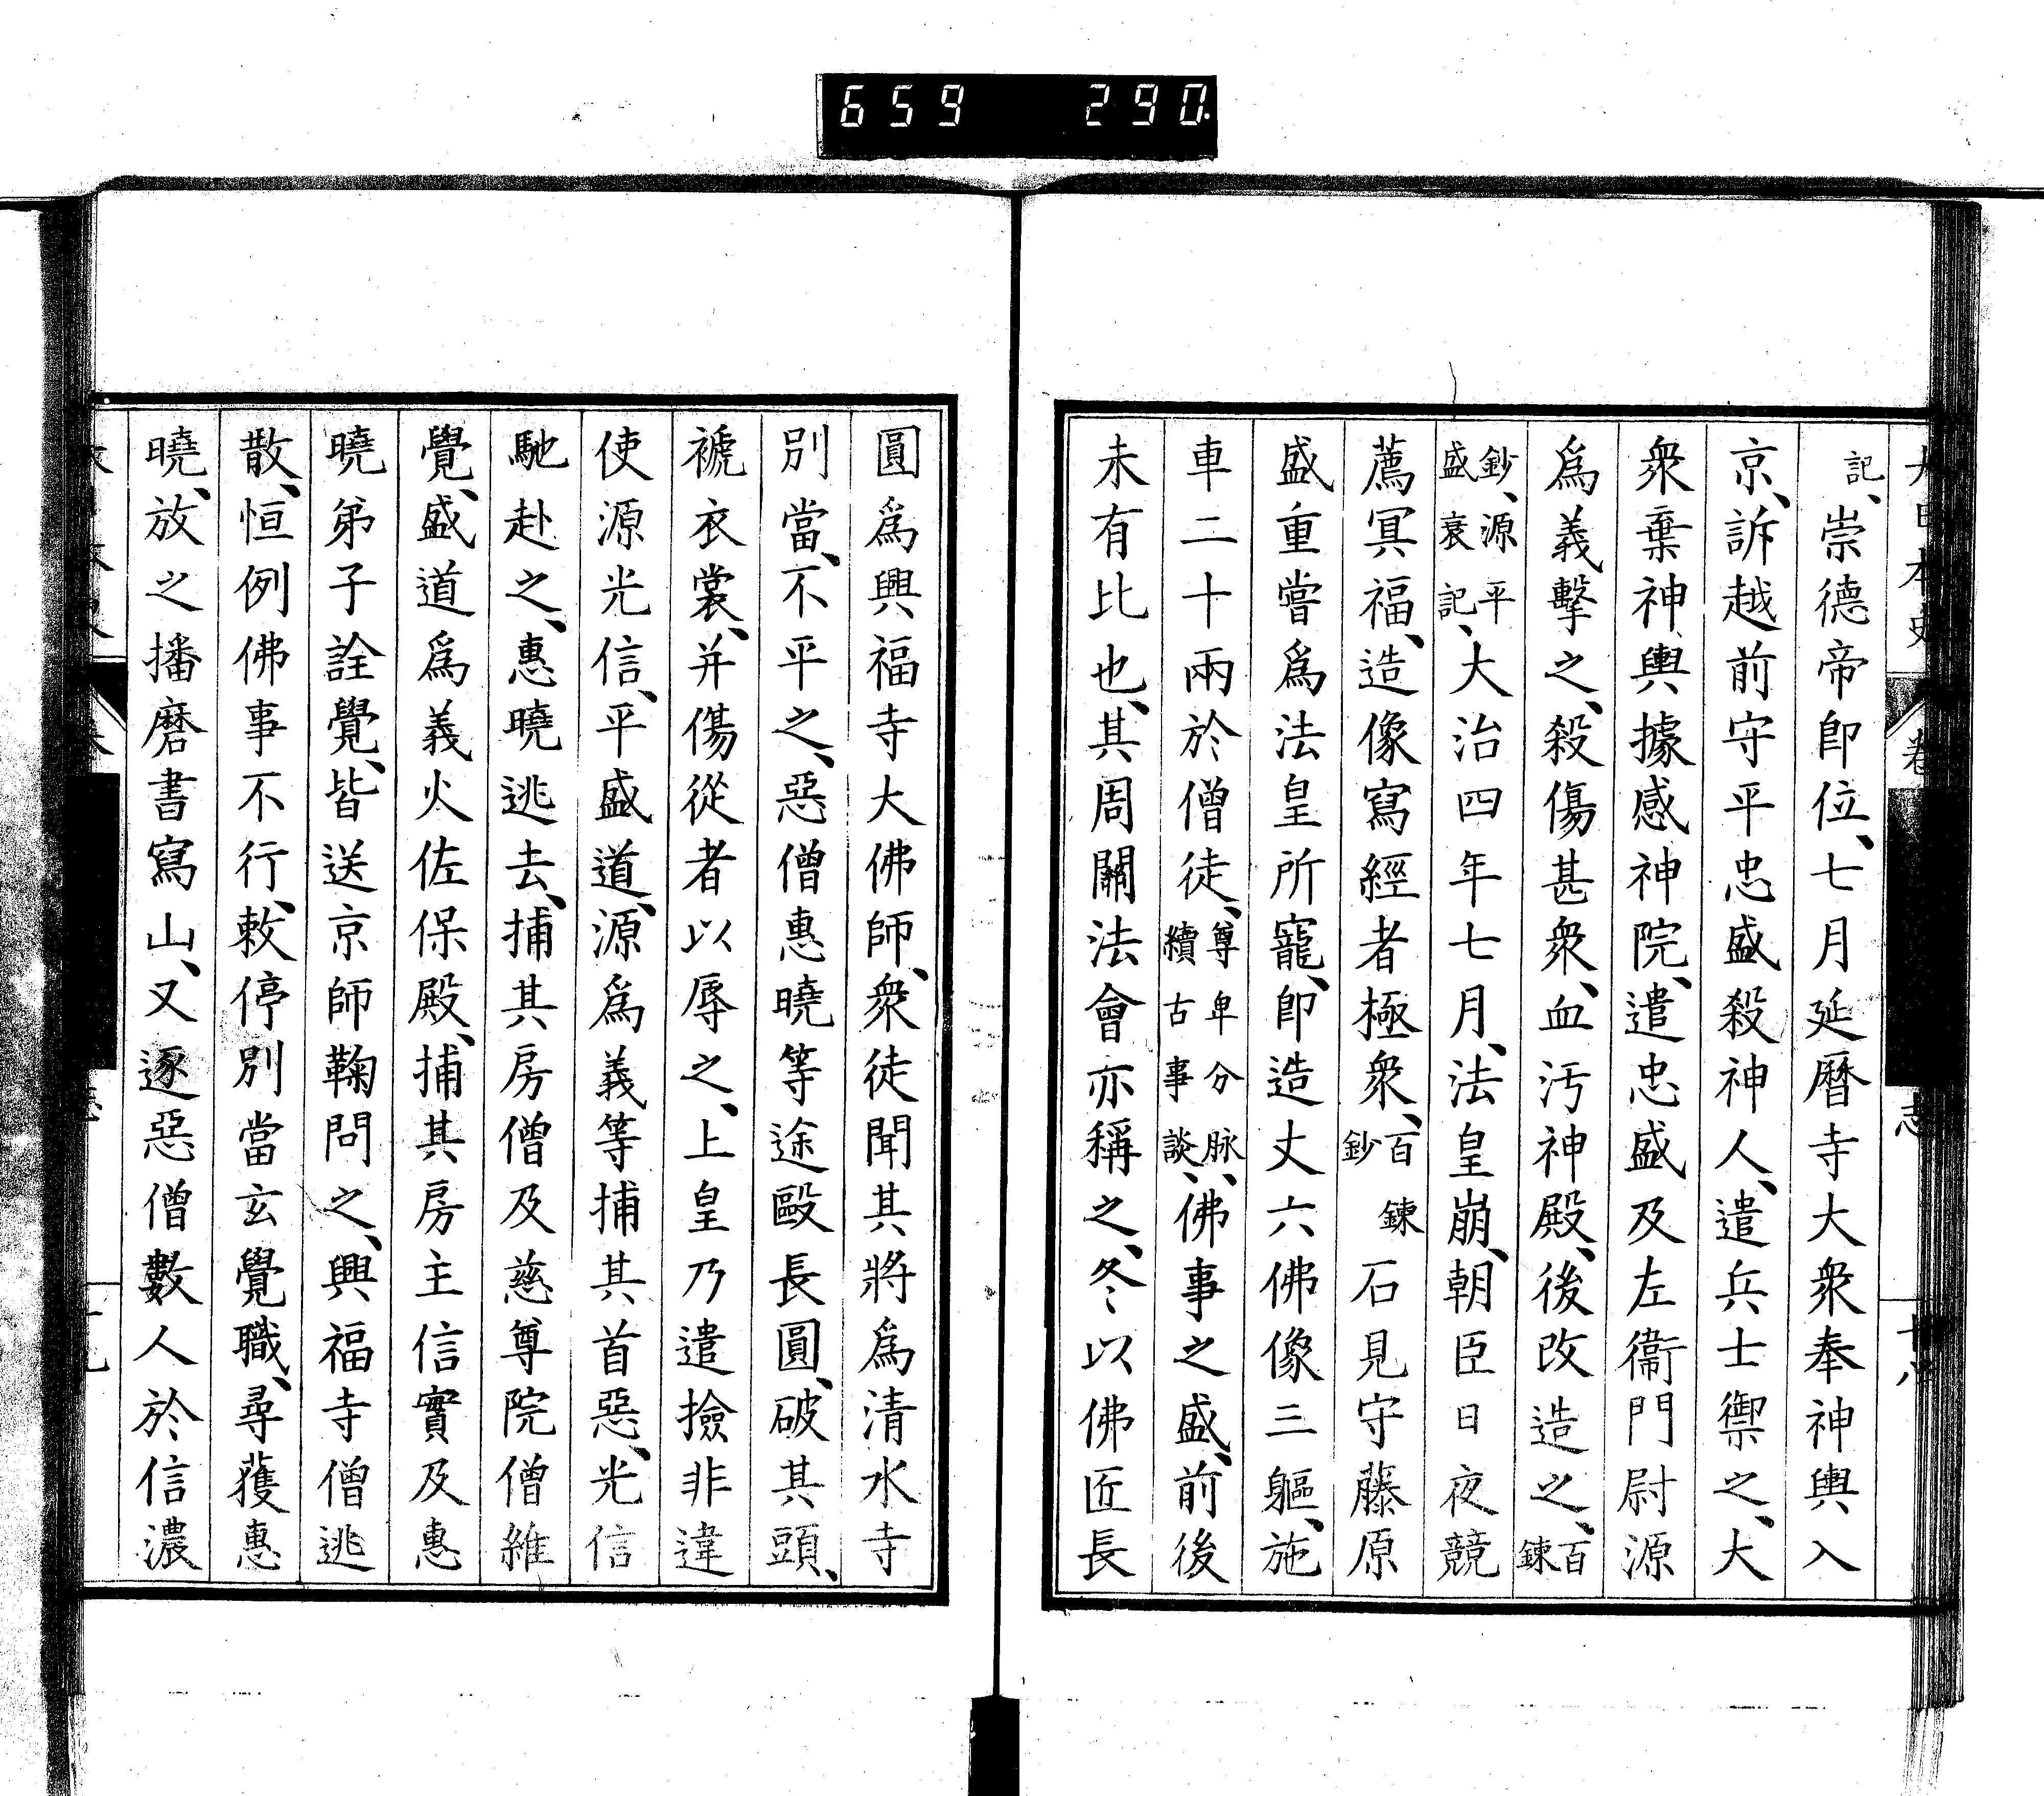 659 290
大日本史 卷 志
記、崇德帝卽位、七月延曆寺大衆奉神輿入
京、訴越前守平忠盛殺神人、遣兵士禦之、大
衆棄神輿據感神院、遣忠盛及左衞門尉源
爲義擊之、殺傷甚衆、血汚神殿、後改造之、百鍊
鈔、源平盛衰記、大治四年七月、法皇崩、朝臣日夜競
薦冥福、造像寫經者極衆、百鍊鈔 石見守藤原
盛重嘗爲法皇所寵、卽造丈六佛像三軀、施
車二十兩於僧徒、尊卑分脉、續古事談、佛事之盛、前後
未有比也、其周關法會亦稱之、冬以佛匠長
圓爲興福寺大佛師、衆徒聞其將爲淸水寺
別當、不平之、惡僧惠曉等途毆長圓、破其頭、
褫衣裳、幷傷從者以辱之、上皇乃遣撿非違
使源光信、平盛道、源爲義等捕其首惡、光信
馳赴之、惠曉逃去、捕其房僧及慈尊院僧維
覺、盛道爲義火佐保殿、捕其房主信實及惠
曉弟子詮覺、皆送京師鞠問之、興福寺僧逃
散、恒例佛事不行、敕停別當玄覺職、尋獲惠
曉、放之播磨書寫山、又逐惡僧數人於信濃